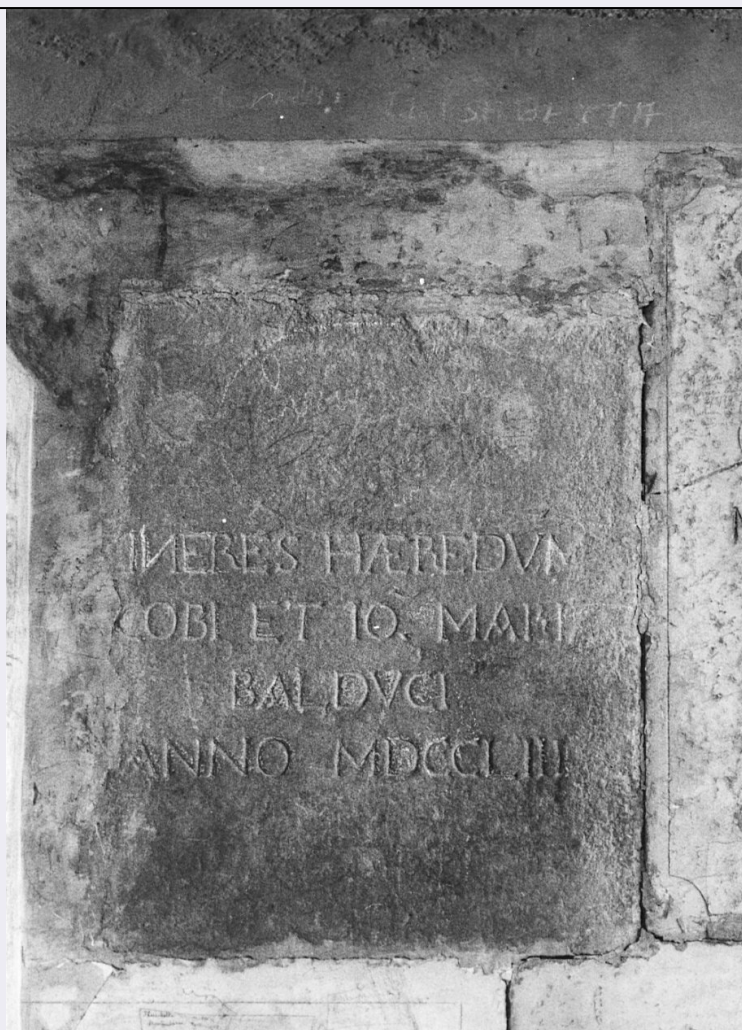 INERES HÆREDVM
COBI ET IO. MARI
BALDVCI
ANNO MDCCLIII